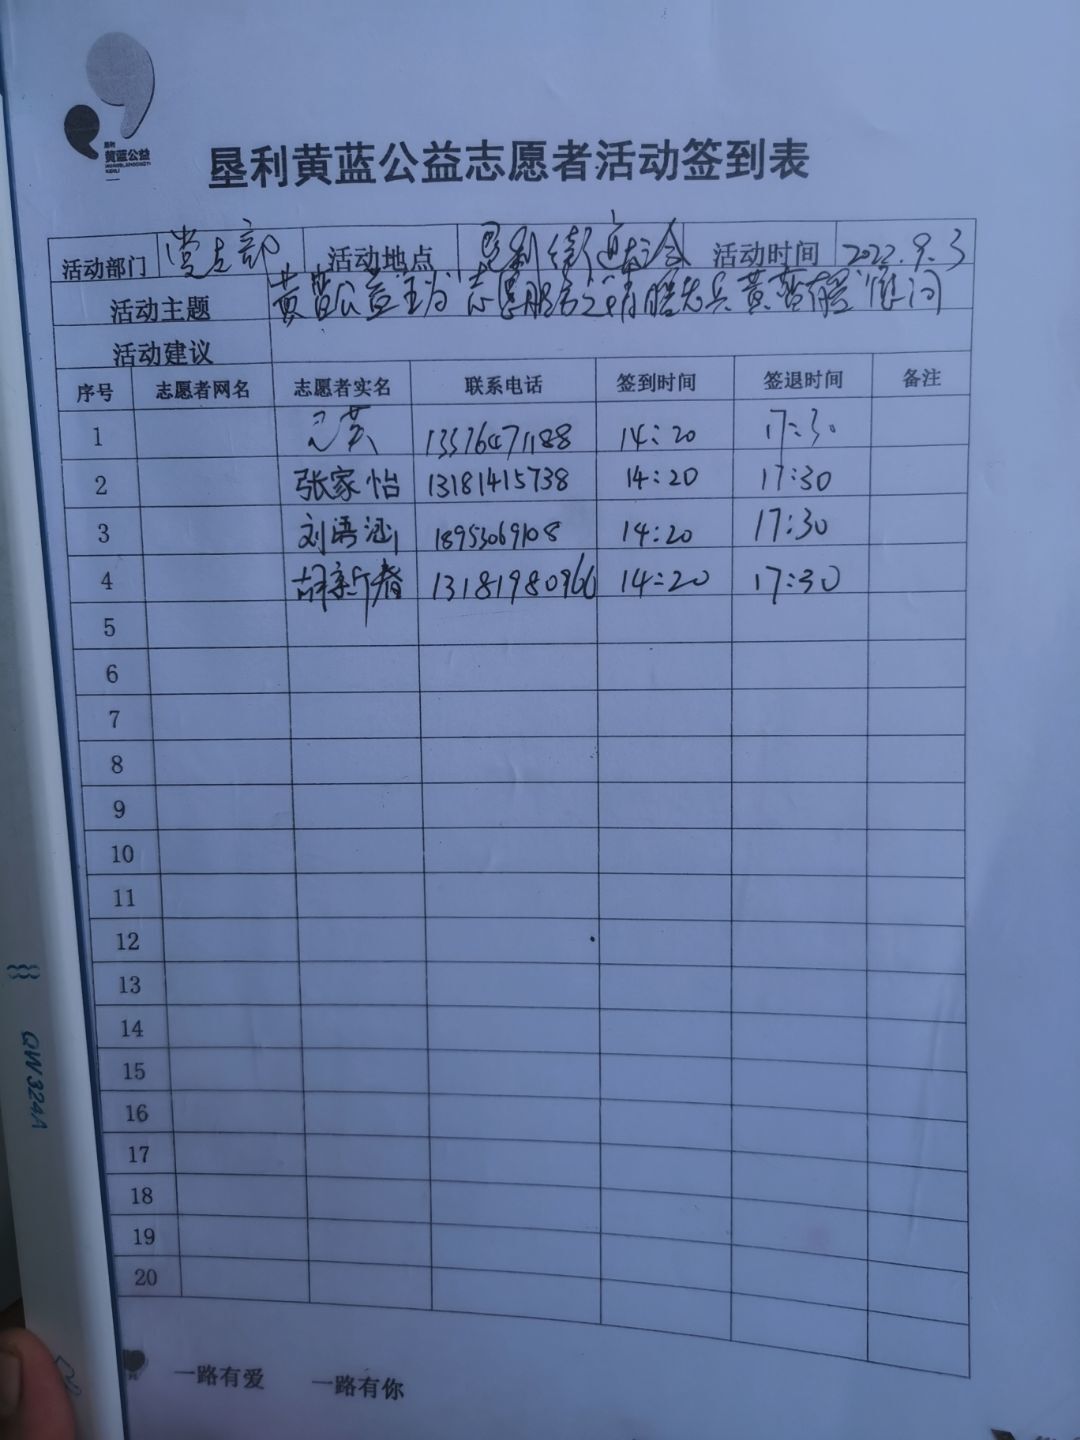 垦利
黄蓝公益
垦利黄蓝公益志愿者活动签到表
活动部门 党支部 活动地点 垦利街道 活动时间 2022.9.3
活动主题 黄蓝公益 老兵黄蓝 慰问
活动建议
序号 志愿者网名 志愿者实名 联系电话 签到时间 签退时间 备注
1 14:20 17:30
2 张家怡 13181415738 14:20 17:30
3 刘语涵 18953069108 14:20 17:30
4 胡新春 13181980966 14:20 17:30
5
6
7
8
9
10
11
12
13
14
15
16
17
18
19
20
一路有爱 一路有你
QW324A